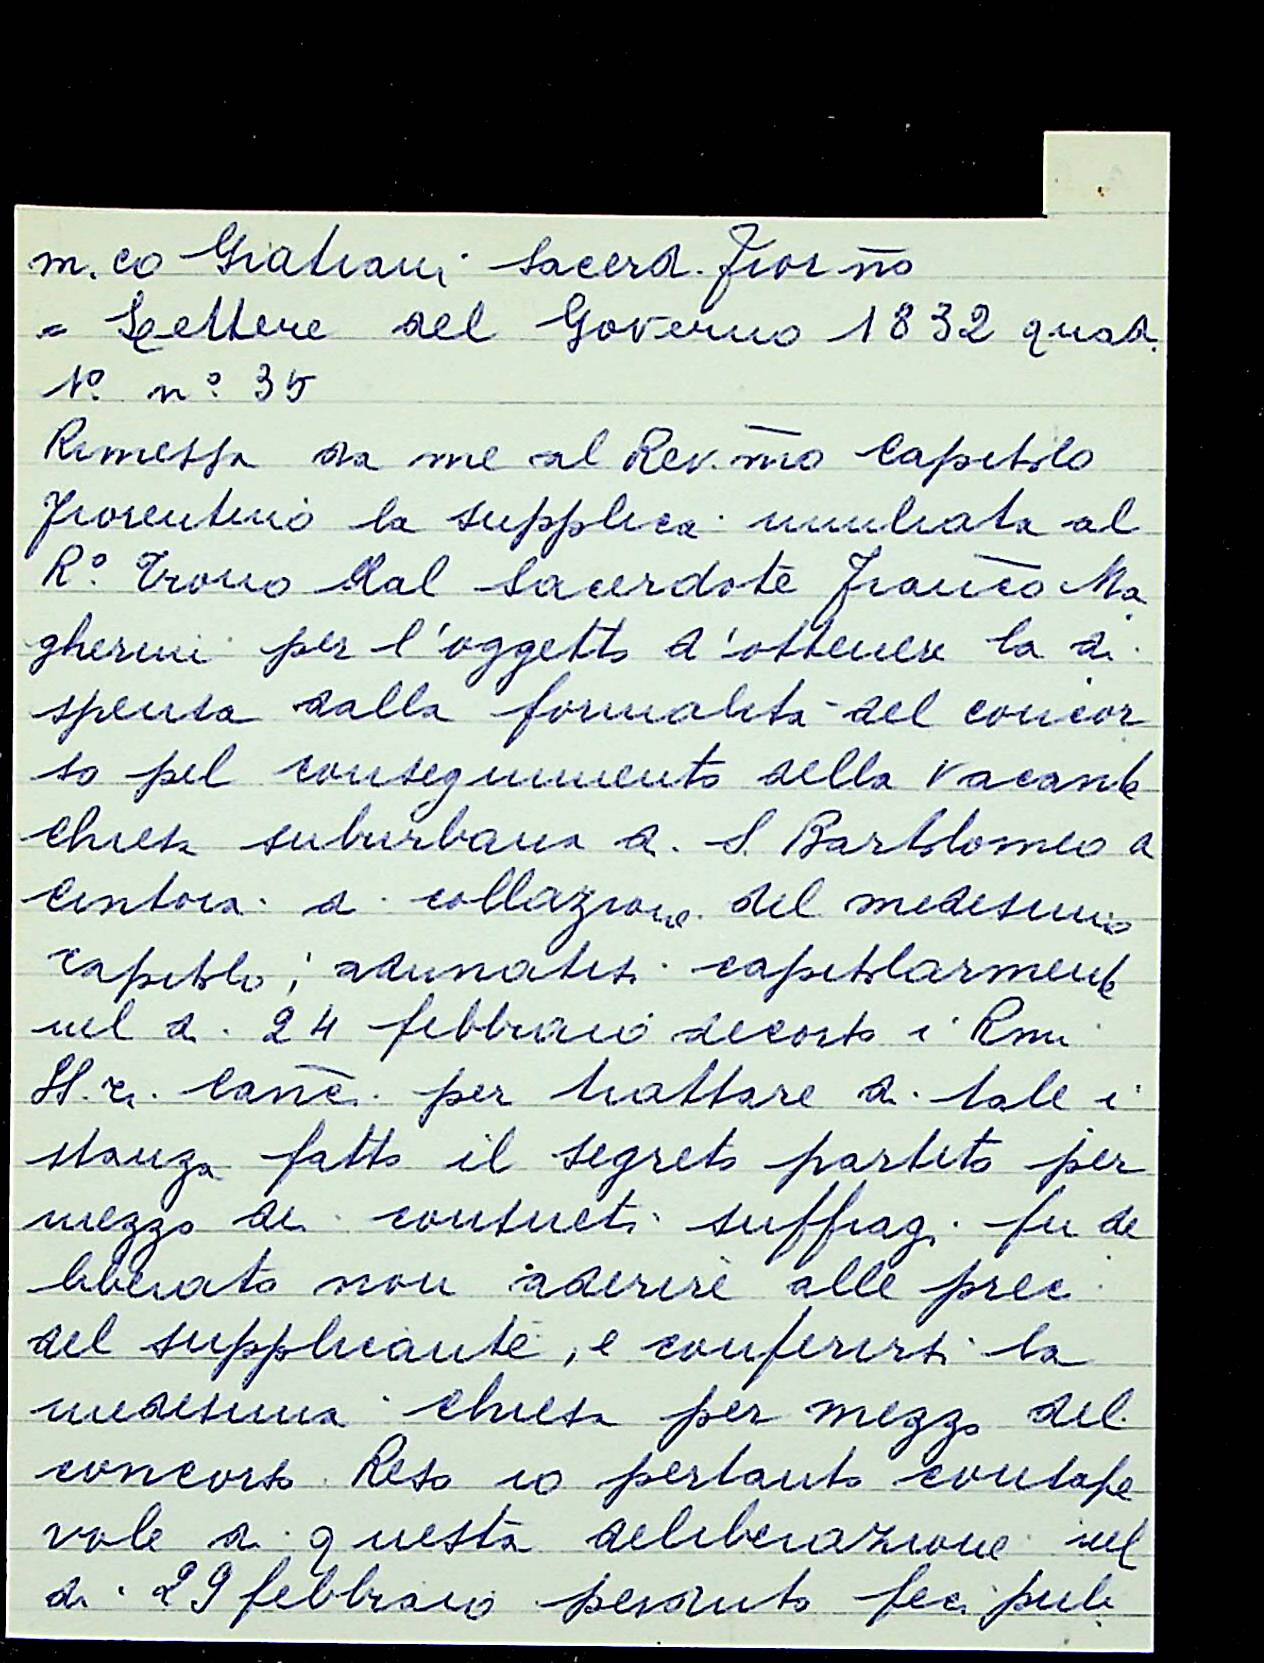 m.co Graziani Sacerd. Fior.no
= Lettere del Governo 1832 quad.
1º nº 35
Rimessa da me al Rev.mo Capitolo
Fiorentino la supplica umiliata al
Rº Trono dal Sacerdote Franco Ma
gherini per l'oggetto d'ottenere la di
spensa dalla formalità del concor
so pel conseguimento della vacante
chiesa suburbana di S. Bartolomeo a
Cintoia di collazione del medesimo
capitolo; adunatisi capitolarmente
nel dì 24 febbraio decorso i Rmi
SS.ri Canci per trattare di tale i
stanza fatto il segreto partito per
mezzo dei consueti suffragi fu de
liberato non aderire alle preci
del supplicante, e conferirsi la
medesima chiesa per mezzo del
concorso Reso io pertanto consape
vole di questa deliberazione nel
dì 29 febbraio perduto feci pub